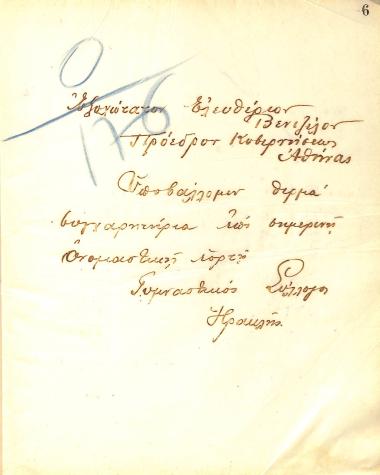 6
0/176
Ἐξοχώτατον Ἐλευθέριον
Βενιζέλον
Πρόεδρον Κυβερνήσεως
Ἀθήνας
Ὑποβάλλομεν θερμά
συγχαρητήρια ἐπί σημερινῇ
ὀνομαστικῇ ἑορτῇ
Γυμναστικός Σύλλογος
Ἡρακλῆς